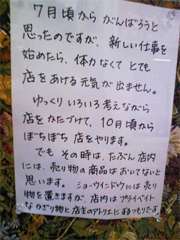 7月頃から がんばろうと
思ったのですが、新しい仕事を
始めたら、体力なくて とても
店をあける元気が出ません。
ゆっくり いろいろ考えながら
店をかたづけて、10月頃から
ぼちぼち 店をやります。
でも その時は、たぶん 店内
には、売り物の商品はおいてないと
思います。ショーウィンドウには売り
物を置きますが、店内はプライベート
なかざり物と 店主のアトリエに